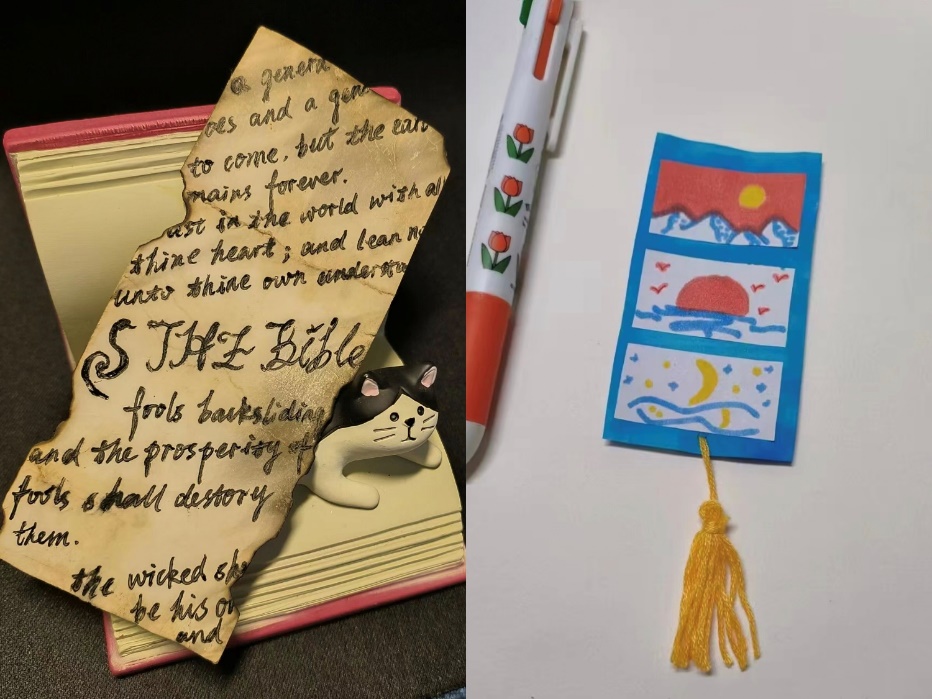 a genera
oes and a gene
to come, but the ear
mains forever.
ust in the world with al
thine heart; and lean no
unto thine own understa
S THE Bible
fools backsliding
and the prosperity of
fools shall destory
them.
the wicked sha
be his ow
and